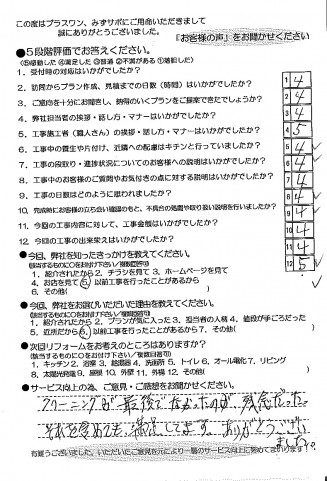 この度はプラスワン、みずサポにご用命いただきまして
誠にありがとうございました。
『お客様の声』をお聞かせください
●5段階評価でお答えください。
(⑤感動した ④満足した ③普通 ②不満がある ①落胆した)
1. 受付時の対応はいかがでしたか? 1 4
2. 訪問からプラン作成、見積までの日数(時間)はいかがでしたか? 2 4
3. ご意向を十分にお聞きし、納得のいくプランをご提案できたでしょうか? 3 4
4. 弊社担当者の挨拶・話し方・マナーはいかがでしたか? 4 5
5. 工事施工者(職人さん)の挨拶・話し方・マナーはいかがでしたか? 5
6. 工事中の養生や片付け、近隣への配慮はキチンと行っていましたか? 6
7. 工事の段取り・進捗状況についてのお客様への説明はいかがでしたか? 7
8. 工事中のお客様のご質問やお気付きの点に対する説明はいかがでしたか? 8 4
9. 工事の日数はどのように思われましたか? 9 4
10. 完成時にお客様の立ち会い確認のもと、不具合の処置や取り扱い説明を行いましたか? 10 4
11. 今回の工事内容に対して、工事金額はいかがでしたか? 11 4
12. 今回の工事の出来栄えはいかがでしたか? 12 5
●今回、弊社を知ったきっかけを教えてください。
(該当するものに○をお付け下さい/複数回答可)
1. 紹介されたから 2. チラシを見て 3. ホームページを見て
4. お店を見て 5. 以前工事を行ったことがあるから
6. その他( )
●今回、弊社をお選びいただいた理由を教えてください。
(該当するものに○をお付け下さい/複数回答可)
1. 紹介されたから 2. プランが気に入った 3. 担当者の人柄 4. 値段が手ごろだった
5. 近所だから 6. 以前工事を行ったことがあるから 7. その他( )
●次回リフォームをお考えのところはありますか?
(該当するものに○をお付け下さい/複数回答可)
1. キッチン 2. 浴室 3. 給湯器 4. 洗面所 5. トイレ 6. オール電化 7. リビング
8. 太陽光発電 9. 屋根 10. 外壁 11. 外構 12. その他( )
●サービス向上の為、ご意見・ご感想をお聞かせください。
クリーニングが最後でなかったのが残念だった。
それを含めても満足してます。ありがとうござい
ました。
有難うございました。いただいたご意見を元により一層のサービス向上に努めてまいります!